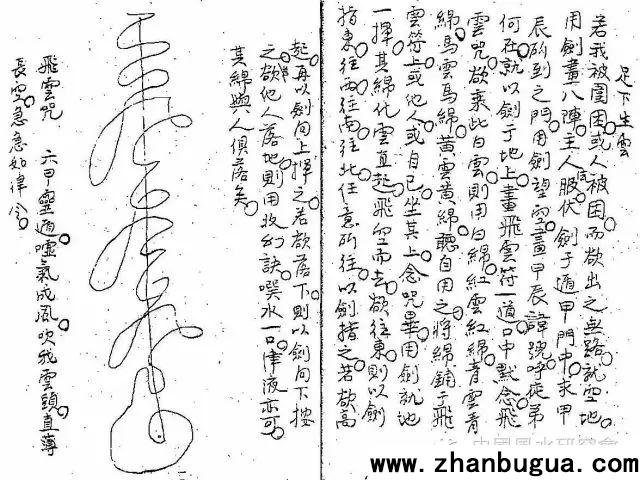 足下生雲
若我被圍困或人被困而欲出之無路就空地
用劍畫八陣主人服伏劍于遁甲門中求甲
辰所到之門用劍望空畫甲辰諱號呼徒弟
何在就以劍于地上畫飛雲符一道口中默念飛
雲咒欲乘此白雲則用白綿紅雲紅綿青雲青
綿馬雲馬綿黃雲黃綿聽自用之將綿鋪于飛
雲符上或他人或自己坐其上念咒畢用劍就地
一揮其綿化雲直起飛空而去欲往東則以劍
指東往西往南往北任意所往以劍指之若欲高
起再以劍向上揮之若欲落下則以劍向下按
之欲他人落地則用收幻訣噀水一口津液亦可
其綿與人俱落矣
飛雲咒 六甲靈遁噓氣成風吹我雲頭直薄
長空急急如律令
中國風水研究會
www.zhanbugua.com